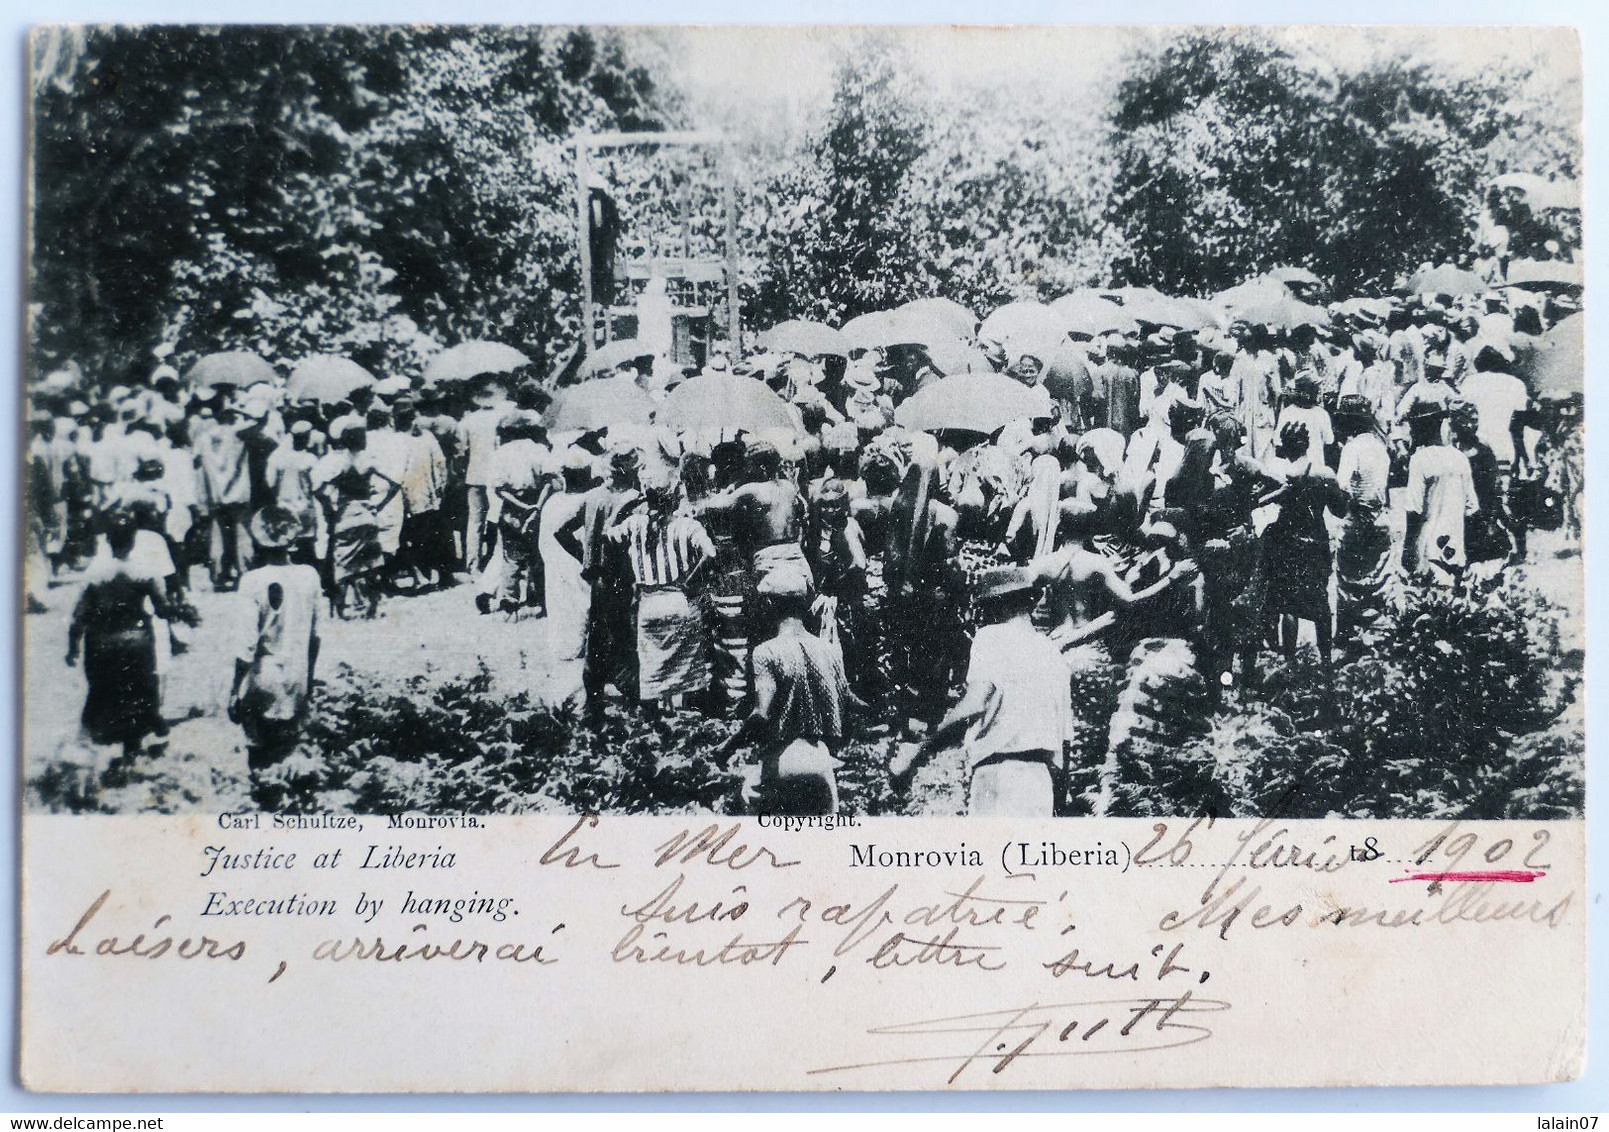 Carl Schultze, Monrovia. Copyright.
Justice at Liberia En Mer Monrovia (Liberia) 26 février 18 1902
Execution by hanging. Suis rapatrié. Mes meilleurs
baisers, arriverai bientot, lettre suit.
delcampe.net
lalain07